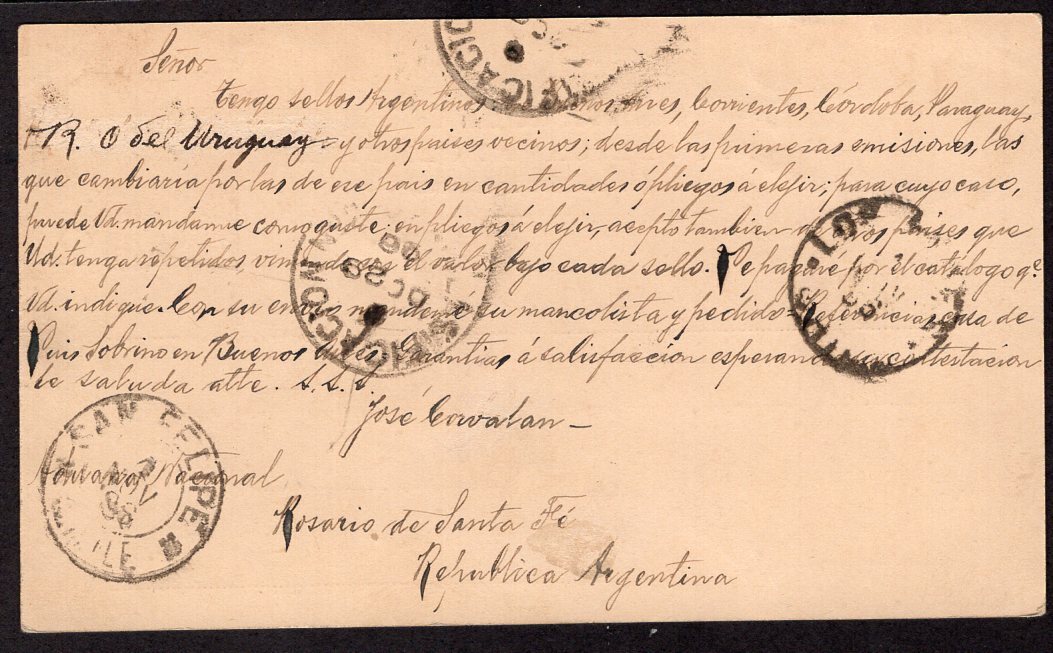 Señor
Tengo sellos Argentinos, Buenos Aires, Corrientes, Córdoba, Paraguay,
R. O del Uruguay - y otros paises vecinos; desde las primeras emisiones, las
que cambiaría por las de ese pais en cantidades ó pliegos á elejir; para cuyo caso,
puede Vd. mandarme como guste, en pliegos á elejir, acepto tambien de otros paises que
Vd. tenga repetidos, el valor bajo cada sello. Le pagaré por el catálogo qe.
Vd. indique. Con su envio mandeme su mancolista y pedido - Referencias casa de
Luis Sobrino en Buenos Aires, Garantias á satisfaccion esperando su contestacion
le saluda atte. S. S. S
José Corvalan -
Nacional
Rosario de Santa Fé
Republica Argentina
SAN FELIPE
2
NOV
96
CHILE
29
OC
96